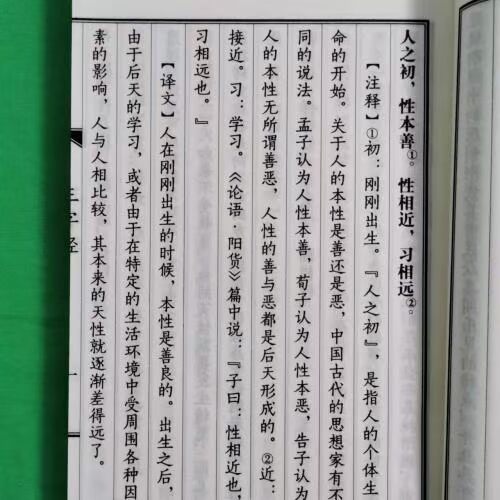 人之初，性本善①。性相近，习相远②。
【注释】①初：刚刚出生。『人之初』，是指人的个体生
命的开始。关于人的本性是善还是恶，中国古代的思想家有不
同的说法。孟子认为人性本善，荀子认为人性本恶，告子认为
人的本性无所谓善恶，人性的善与恶都是后天形成的。②近：
接近。习：学习。《论语·阳货》篇中说：『子曰：性相近也，
习相远也。』
【译文】人在刚刚出生的时候，本性是善良的。出生之后，
由于后天的学习，或者由于在特定的生活环境中受周围各种因
素的影响，人与人相比较，其本来的天性就逐渐差得远了。
三字经
一